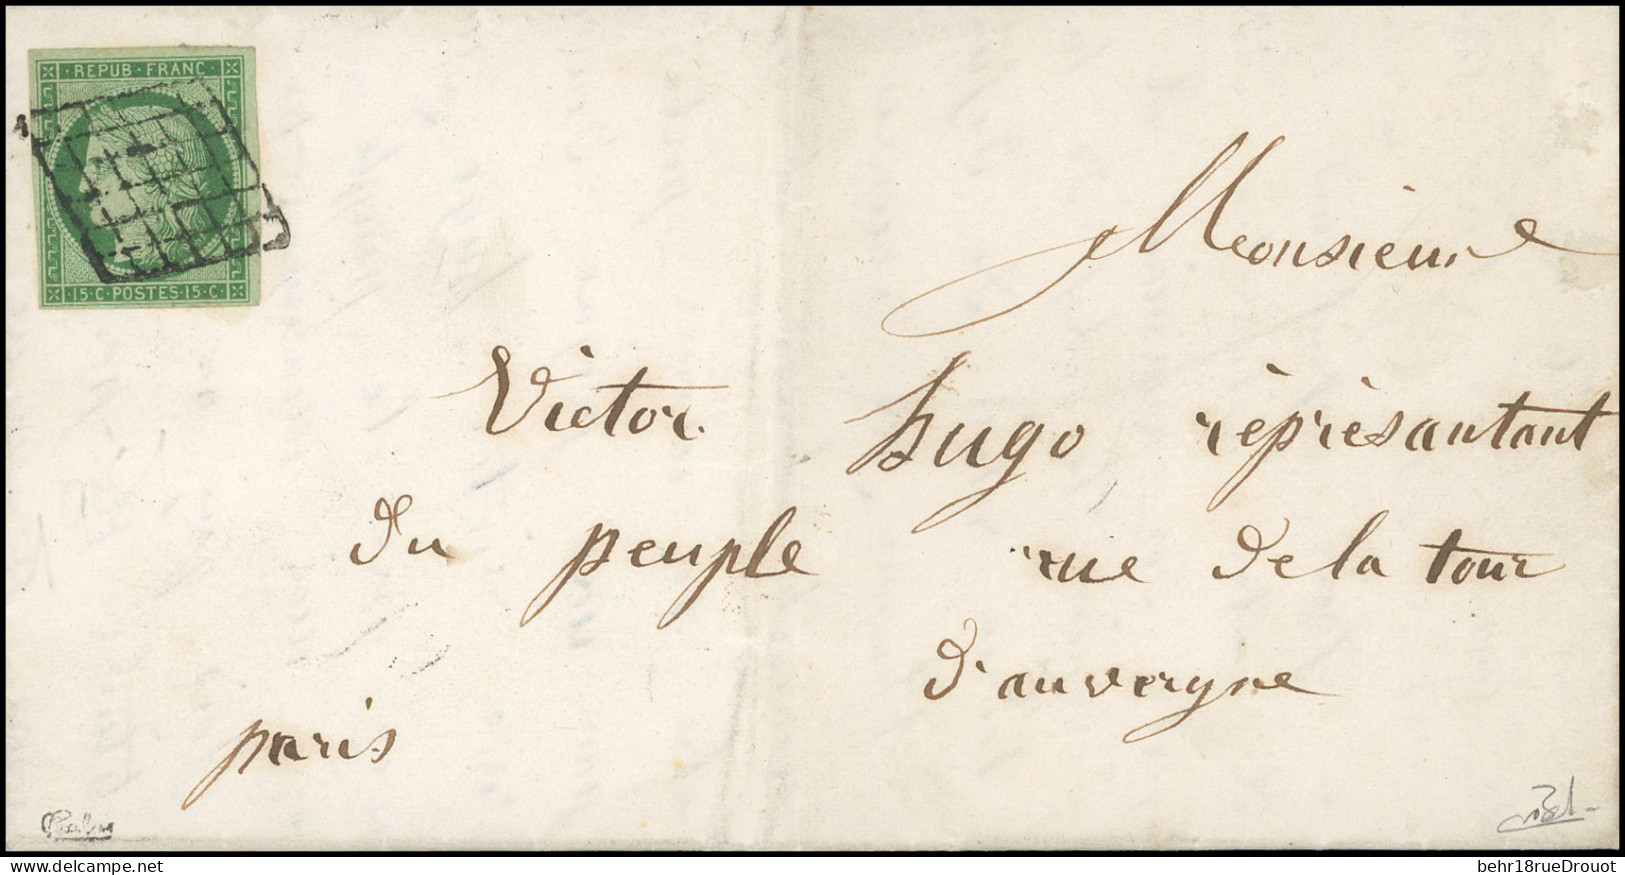 · REPUB · FRANC ·
· 15 · C · POSTES · 15 · C ·
Monsieur
Victor hugo réprésantant
du peuple rue de la tour
d'auvergne
paris
behr18rueDrouot